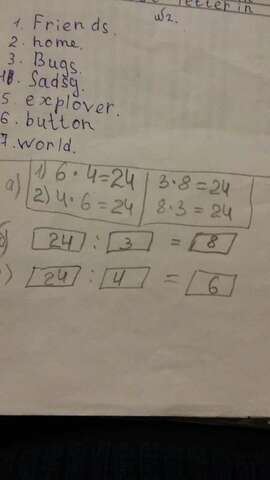 letter in
№2.
1. Friends.
2. home.
3. Bugs.
5. explover.
6. button
7. world.
а) 1) 6 · 4 = 24 3 · 8 = 24
2) 4 · 6 = 24 8 · 3 = 24
б) 24 : 3 = 8
) 24 : 4 = 6